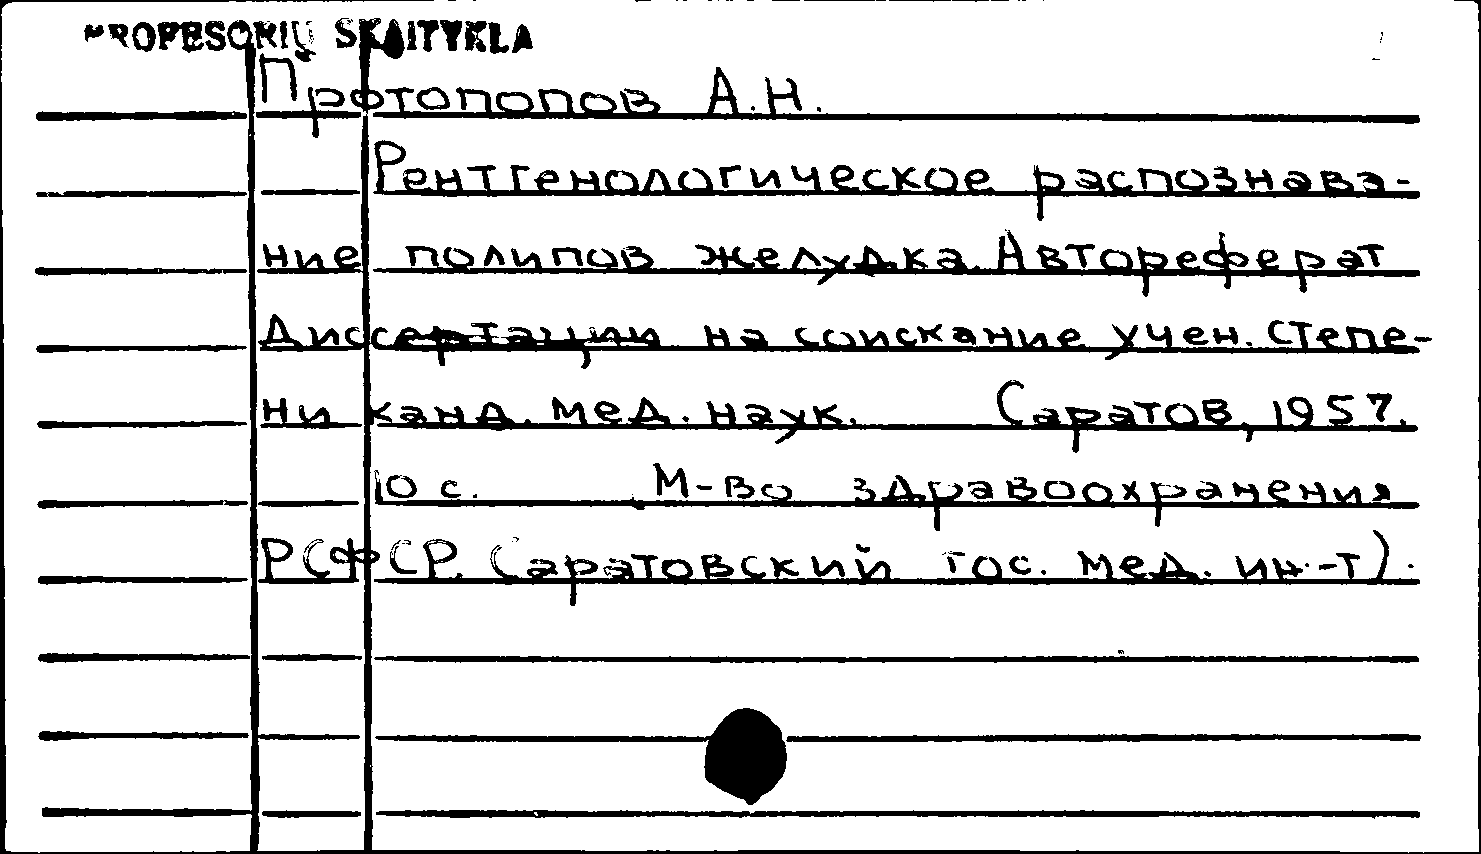 PROFESORIŲ SKAITYKLA
Протопопов А.Н.
Рентгенологическое распознава-
ние полипов желудка. Автореферат
диссертации на соискание учен. степе-
ни канд. мед. наук. Саратов, 1957.
10 с. М-во здравоохранения
РСФСР. Саратовский гос. мед. ин-т).